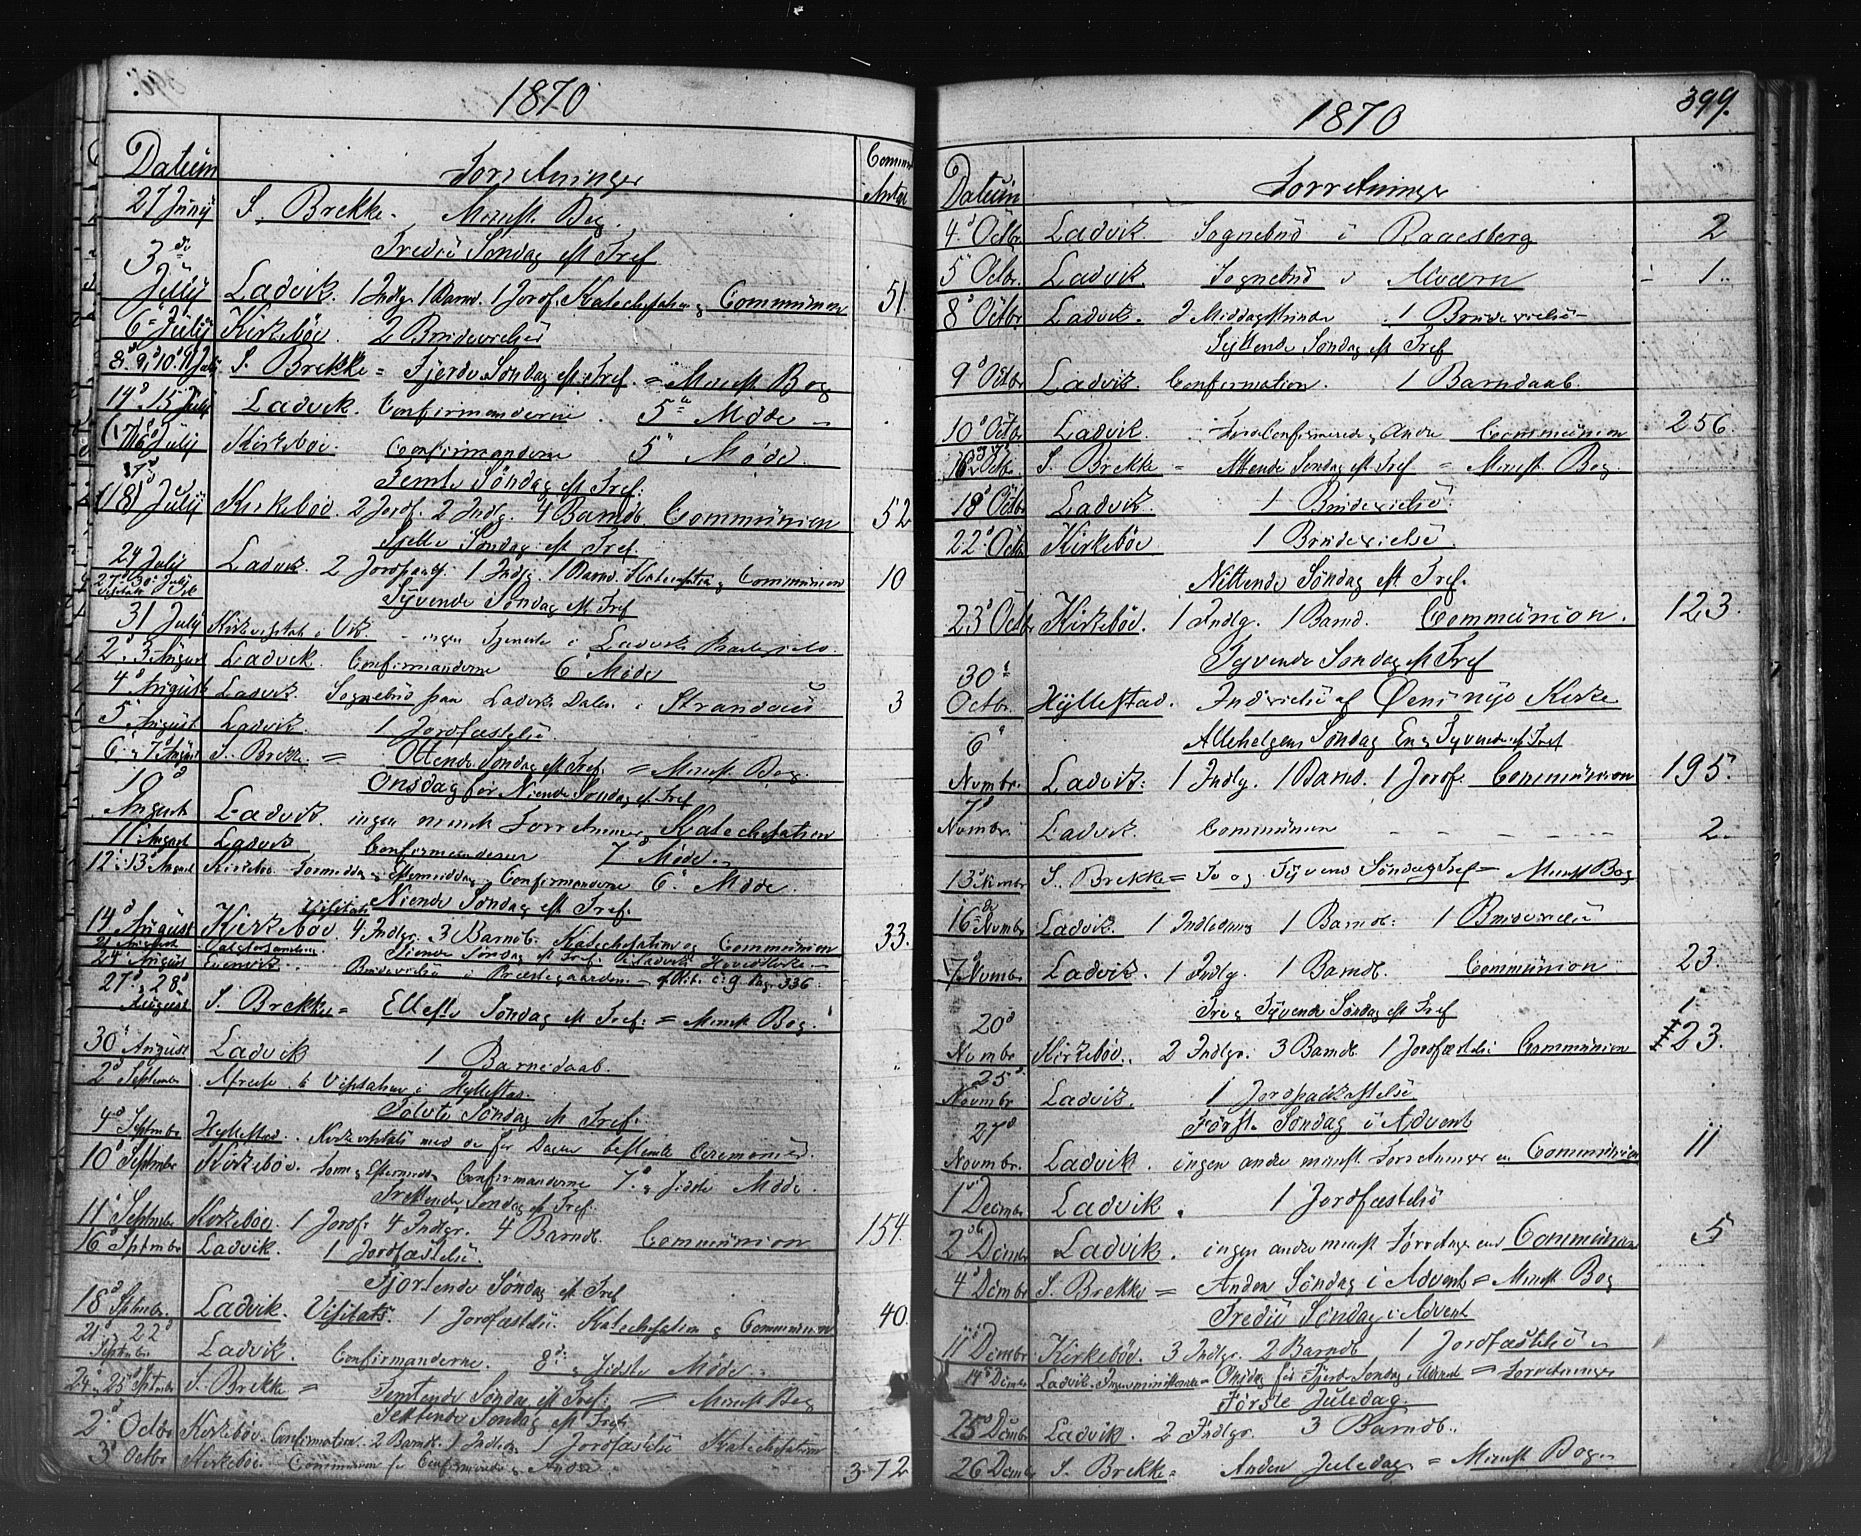 1870
Datum Forretninger Commun Antal
27 Junij S. Brekke. Minist. Bog
3die Tredie Søndag eft Tref
Julij Ladvik. 1 Indlg. 1 Barnd. 1 Jordf. Katechisation og Communion 51
6te Julij Kirkebøe. 2 Brudevielser
8. 9. 10. Julij S. Brekke = Fjerde Søndag eft. Tref. = Minist Bog
14. 15 Julij Ladvik. Confirmanderne. 5te Møde
16 Julij Kirkebøe. Confirmanderne 5te Møde.
17 Femte Søndag eft Tref.
Julij Kirkebøe 2 Jordf. 2 Indlg. 4 Barndb. Communion 52
Sjette Søndag eft Tref
24 Julij Ladvik 2 Jordpaak. 1 Indlg. 1 Barnd. Katechisation og Communion 10
27 30. Julij
Syvende Søndag eft Tref
31 Julij Kirkevisitats i Vik ingen Tjeneste i Ladviks
2. 3 August Ladvik. Confirmanderne 6te Møde
4 August Ladvik. Sognebud paa Ladviks Dalen i 3
5 August Ladvik. 1 Jordfæstelse
6. 7 August S. Brekke = Ottende Søndag eft Tref. = Minist Bog.
10 Onsdag før Niende Søndag eft Tref
August Ladvik. ingen minist Forretninger Katechisation
11 August Ladvik Confirmanderne 7de Møde
12. 13 August Kirkebøe Formiddag og Eftermiddag Confirmanderne 6te Møde.
Visitats Niende Søndag eft Tref.
14 August Kirkebøe 4 Indlgr. 3 Barndb. Katechisation og Communion 33.
21 August Tiende Søndag eft Tref.
24 August Evenvik. Brudevielse i Præstegaarden. Pag. 336
27. 28
August S. Brekke = Ellefte Søndag eft Tref. = Minist Bog.
30 August Ladvik 1 Barnedaab.
2 Septembr Afreise til Visitatsen i Hyllestad.
Tolvte Søndag eft Tref.
4 Septmbr Hyllestad. Kirkevisitats med de for Dagen bestemte Ceremonier.
10 Septmbr Kirkebøe. Form. og Eftermidd. Confirmanderne 7de og sidste Møde.
Trettende Søndag eft Tref.
11 Septmbr Kirkebøe 1 Jordf. 4 Indlgr. 4 Barndb. Communion 154.
16 Sptmbr Ladvik. 1 Jordfæstelse.
Fjortende Søndag eft Tref
18 Sptmbr. Ladvik. Visitats. 1 Jordfæstelse Katechisation og Communion 40.
21. 22
Septmbr Ladvik. Confirmanderne. 8de og sidste Møde.
24. 25 Sptmbr S. Brekke = Femtende Søndag eft Tref. = Minist Bog
Sextende Søndag eft Tref
2 Octbr Kirkebøe. Confirmation. 2 Barndb. 1 Indlgn 1 Jordfæstelse Katechisation
3 Octbr Kirkebøe Communion for Confirmerede og Andre 372
1870 399.
Datum Forretninger
4. Octbr. Ladvik. Sognebud i Raaesberg 2
5 Octbr. Ladvik. Sognebud i Alværn 1.
8 Octbr Ladvik. 2 Middagsstunde 1 Brudevielse
Syttende Søndag eft Tref
9 Octbr Ladvik. Confirmation. 1 Barndaab.
10 Octbr Ladvik. for Confirmerede og Andre Communion 256.
16 Octbr. S. Brekke = Attende Søndag eft Tref = Minist Bog
18 Octbr Ladvik. 1 Brudevielse
22 Octbr Kirkebøe 1 Brudevielse.
Nittende Søndag eft Tref.
23 Octbr Kirkebøe. 1 Indlg. 1 Barnd. Communion. 123.
30te Tyvende Søndag eft Tref
Octbr. Hyllestad. Indvielse af Øens nye Kirke
6 Allehelgens Søndag En og Tyvende eft Tref
Novmbr. Ladvik. 1 Indlg. 1 Barnd. 1 Jordf. Communion 195.
7
Novmbr. Ladvik. Communion 2.
13 Novmbr S. Brekke = To og Tyvend Søndag Tref = Minist Bog
16de Novmbr Ladvik. 1 Indledning 1 Barndb. 1 Brudevielse
17 Novmbr Ladvik. 1 Indlg. 1 Barndb. Communion 23.
20 Tre og Tyvende Søndag eft Tref
Novmbr Kirkebøe. 2 Indlgr. 3 Barndb. 1 Jordfæstelse Communion 123.
25
Novmbr Ladvik. 1 Jordpaakastelse
27 Første Søndag i Advent
Novmbr. Ladvik. ingen andre minist Forretninger en Communion 11
1 Decmbr Ladvik. 1 Jordfæstelse
2 Decmbr Ladvik. ingen andre minist Forretninger end Communion 5
4 Decmbr S. Brekke = Anden Søndag i Advent = Minist Bog
Tredie Søndag i Advent
11 Decmbr Kirkebøe. 3 Indlgr. 2 Barndb 1 Jordfæstelse
14 Decmbr Ladvik. Ingen ministerielle = Onsdag før Fjerde Søndag i Advent = Forretninger
Første Juledag.
25 Decmbr Ladvik. 2 Indlgr. 3 Barndb.
26 Decmbr S. Brekke = Anden Juledag = Minist Bog